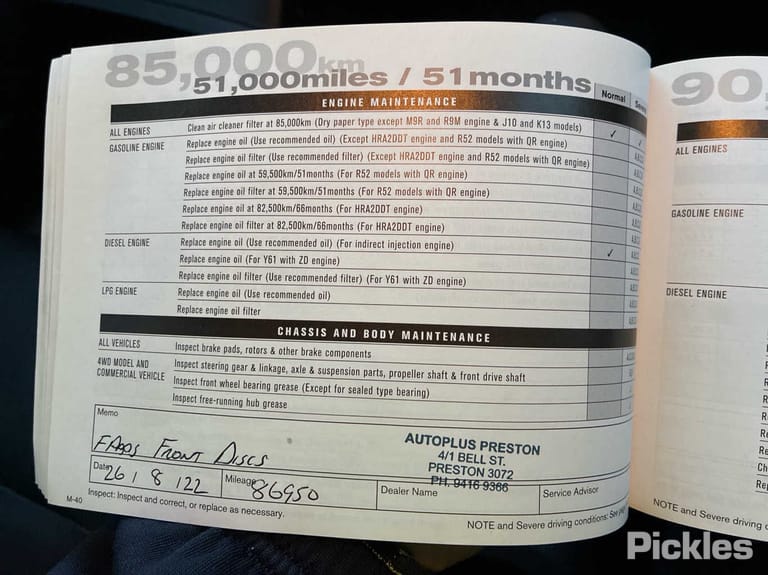 85,000km
51,000miles / 51months
Normal
ENGINE MAINTENANCE
ALL ENGINES Clean air cleaner filter at 85,000km (Dry paper type except M9R and R9M engine & J10 and K13 models) ✓ ✓
GASOLINE ENGINE Replace engine oil (Use recommended oil) (Except HRA2DDT engine and R52 models with QR engine)
Replace engine oil filter (Use recommended filter) (Except HRA2DDT engine and R52 models with QR engine)
Replace engine oil at 59,500km/51months (For R52 models with QR engine)
Replace engine oil filter at 59,500km/51months (For R52 models with QR engine)
Replace engine oil at 82,500km/66months (For HRA2DDT engine)
Replace engine oil filter at 82,500km/66months (For HRA2DDT engine)
DIESEL ENGINE Replace engine oil (Use recommended oil) (For indirect injection engine)
Replace engine oil (For Y61 with ZD engine) ✓
Replace engine oil filter (Use recommended filter) (For Y61 with ZD engine)
LPG ENGINE Replace engine oil (Use recommended oil)
Replace engine oil filter
CHASSIS AND BODY MAINTENANCE
ALL VEHICLES Inspect brake pads, rotors & other brake components
4WD MODEL AND COMMERCIAL VEHICLE Inspect steering gear & linkage, axle & suspension parts, propeller shaft & front drive shaft
Inspect front wheel bearing grease (Except for sealed type bearing)
Inspect free-running hub grease
Memo
FRONT DISCS
AUTOPLUS PRESTON
4/1 BELL ST.
PRESTON 3072
PH. 9416 9366
Date 26 / 8 / 22 Mileage 86950 Dealer Name Service Advisor
M-40 Inspect: Inspect and correct, or replace as necessary.
NOTE and Severe driving conditions: See
90
ALL ENGINES
GASOLINE ENGINE
DIESEL ENGINE
NOTE and Severe driving
Pickles